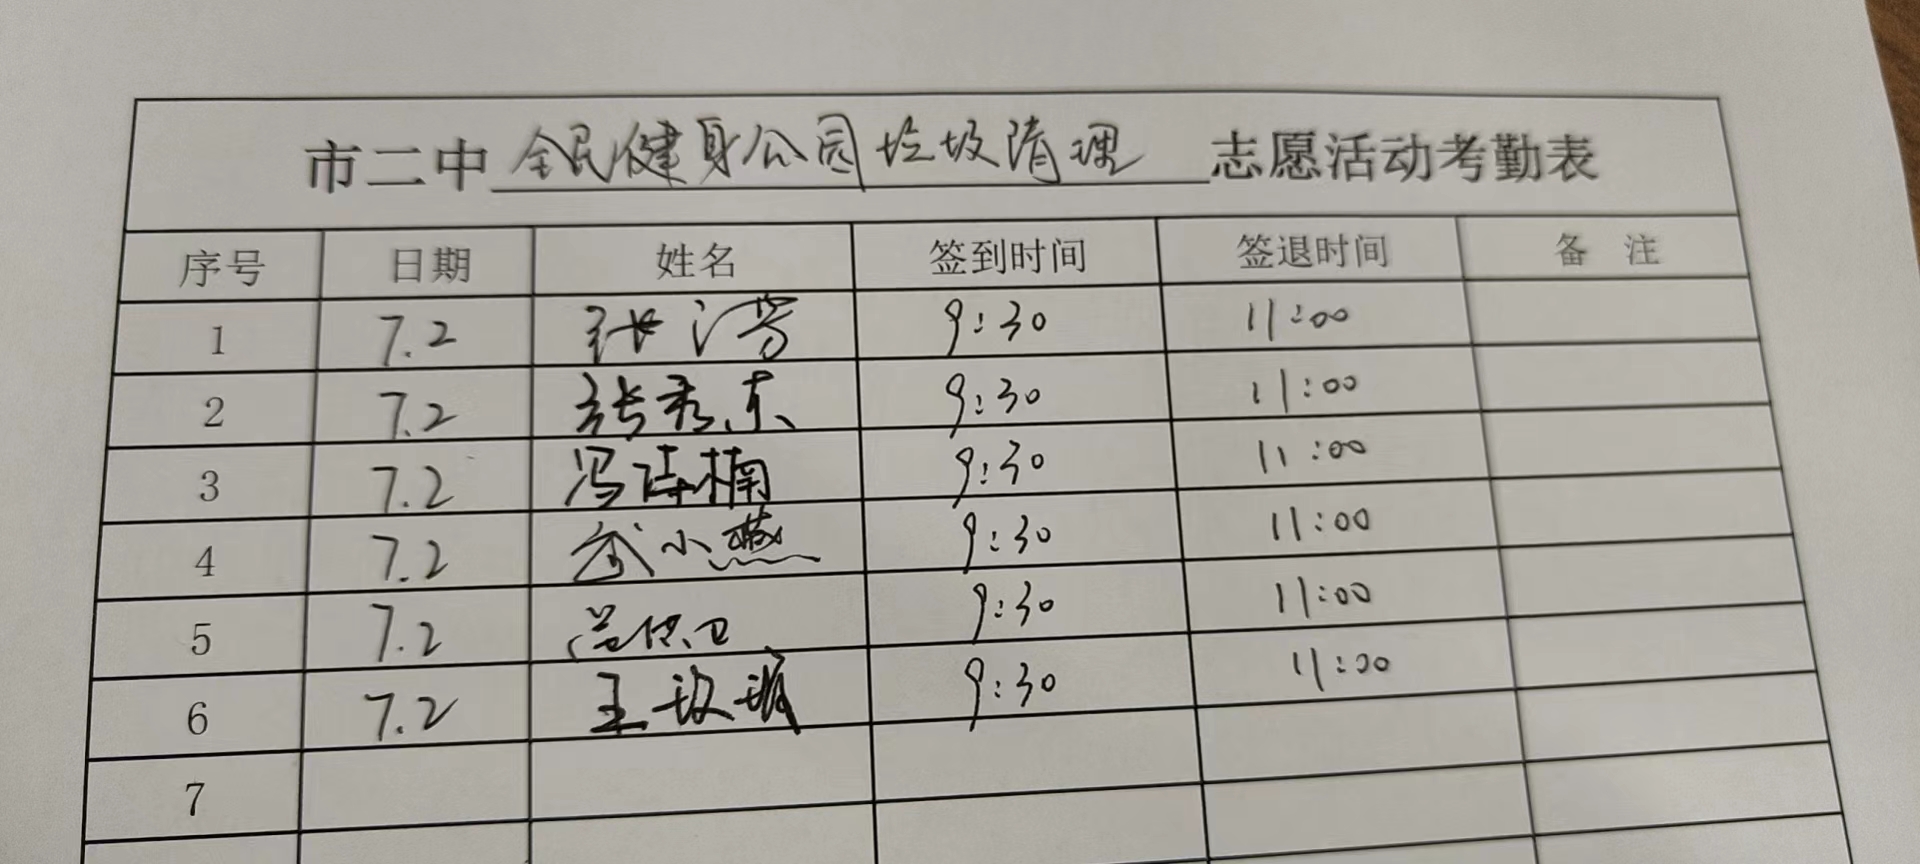 市二中 全民健身公园垃圾清理 志愿活动考勤表
序号 日期 姓名 签到时间 签退时间 备 注
1 7.2 张 9:30 11:00
2 7.2 张秀东 9:30 11:00
3 7.2 冯诗楠 9:30 11:00
4 7.2 武小燕 9:30 11:00
5 7.2 9:30 11:00
6 7.2 王 9:30 11:00
7